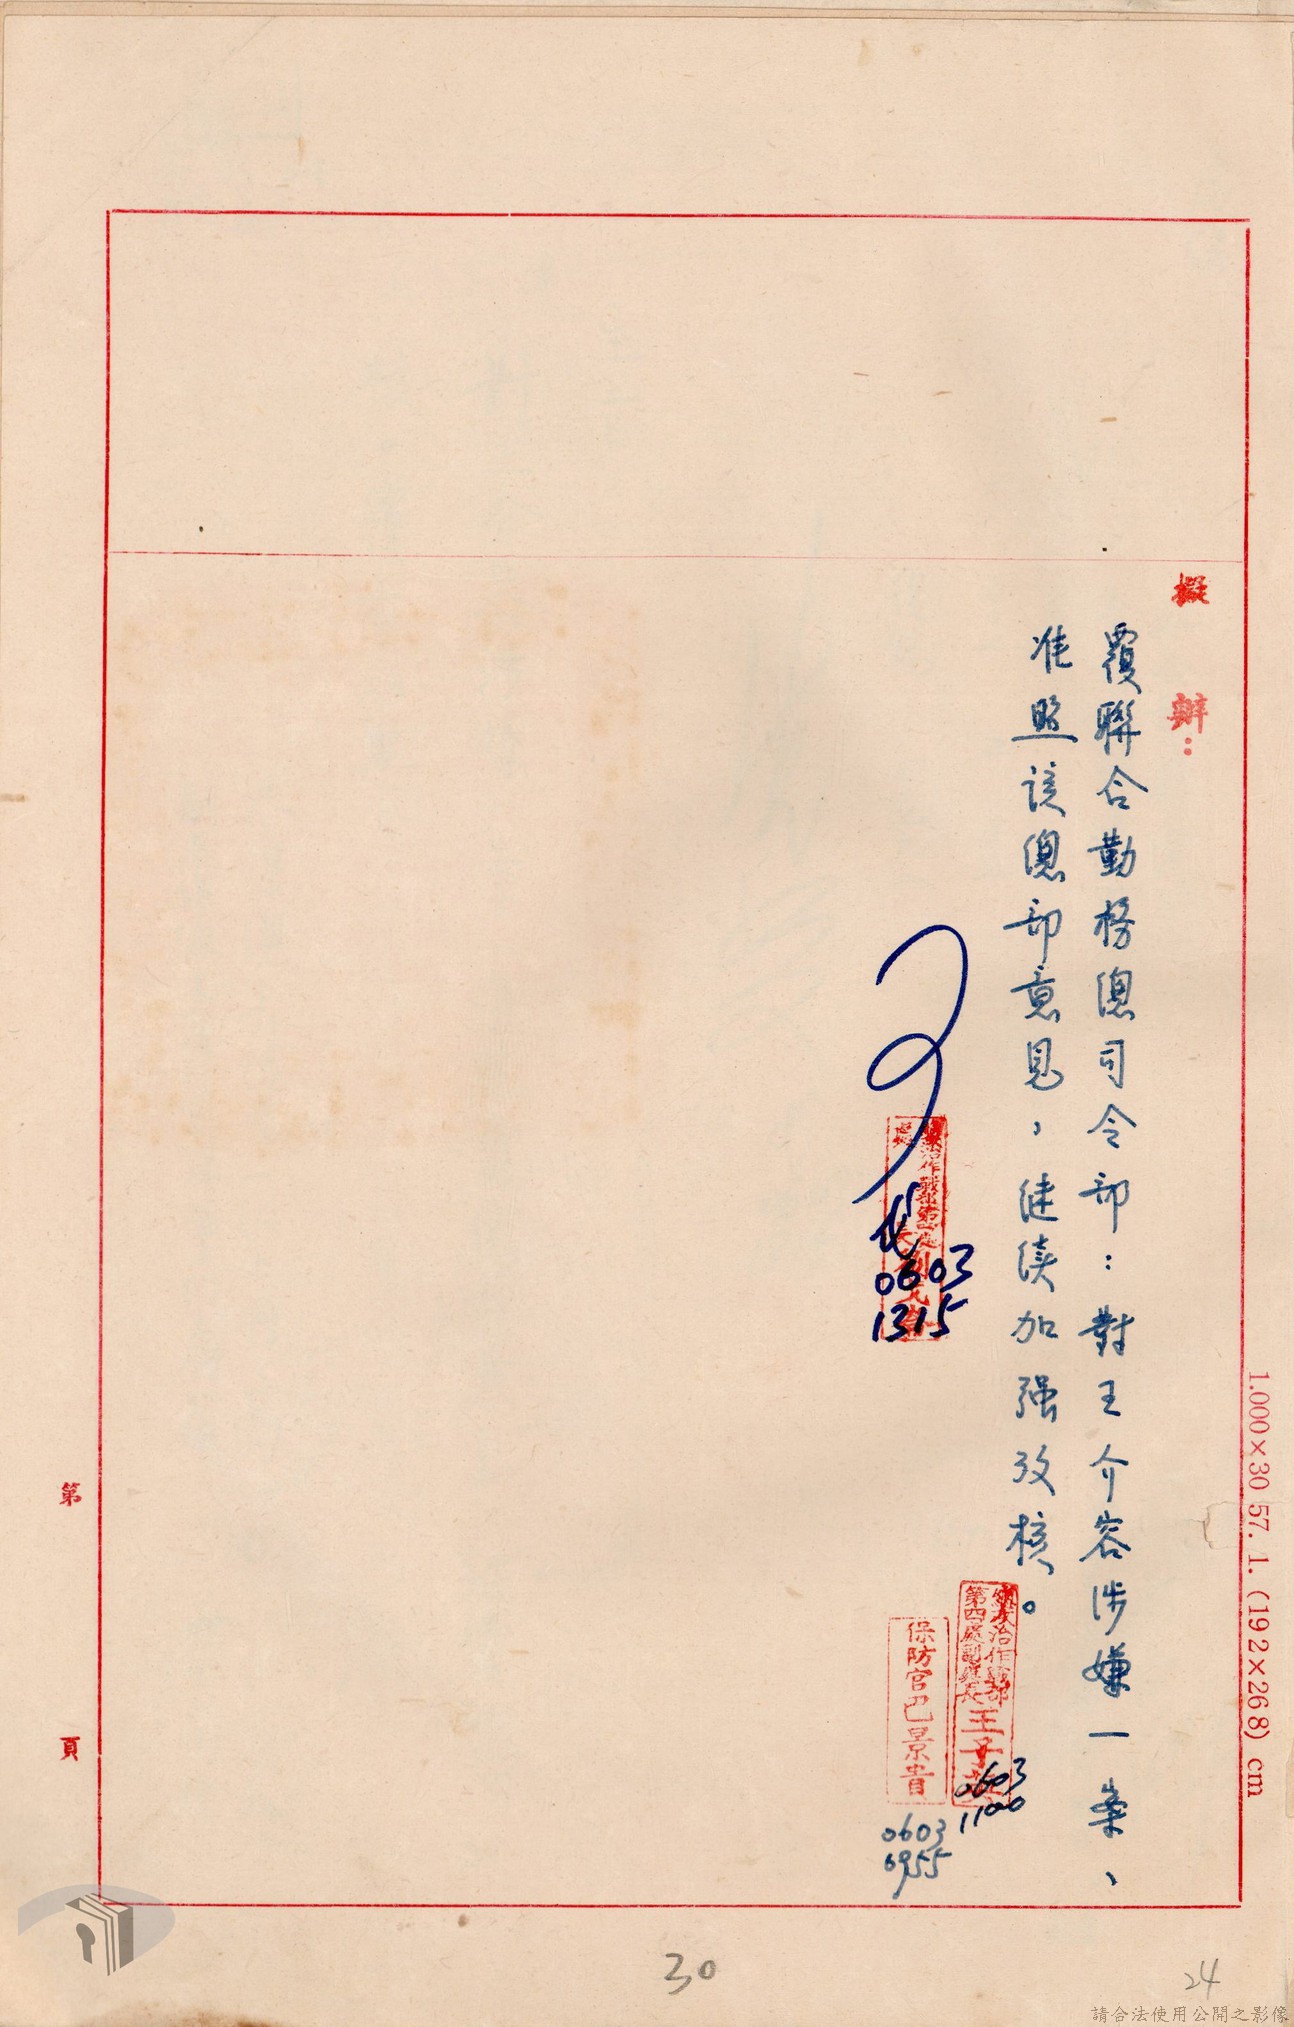 擬辦：
覆聯合勤務總司令部：對王介容涉嫌一案、
准照该總部意見，继续加强攷核。
第四處副處長
王子
0603
1100
保防官巴景貴
0603
0955
0603
1315
第 頁
1.000×30 57.1.(192×268) cm
30
24
請合法使用公開之影像